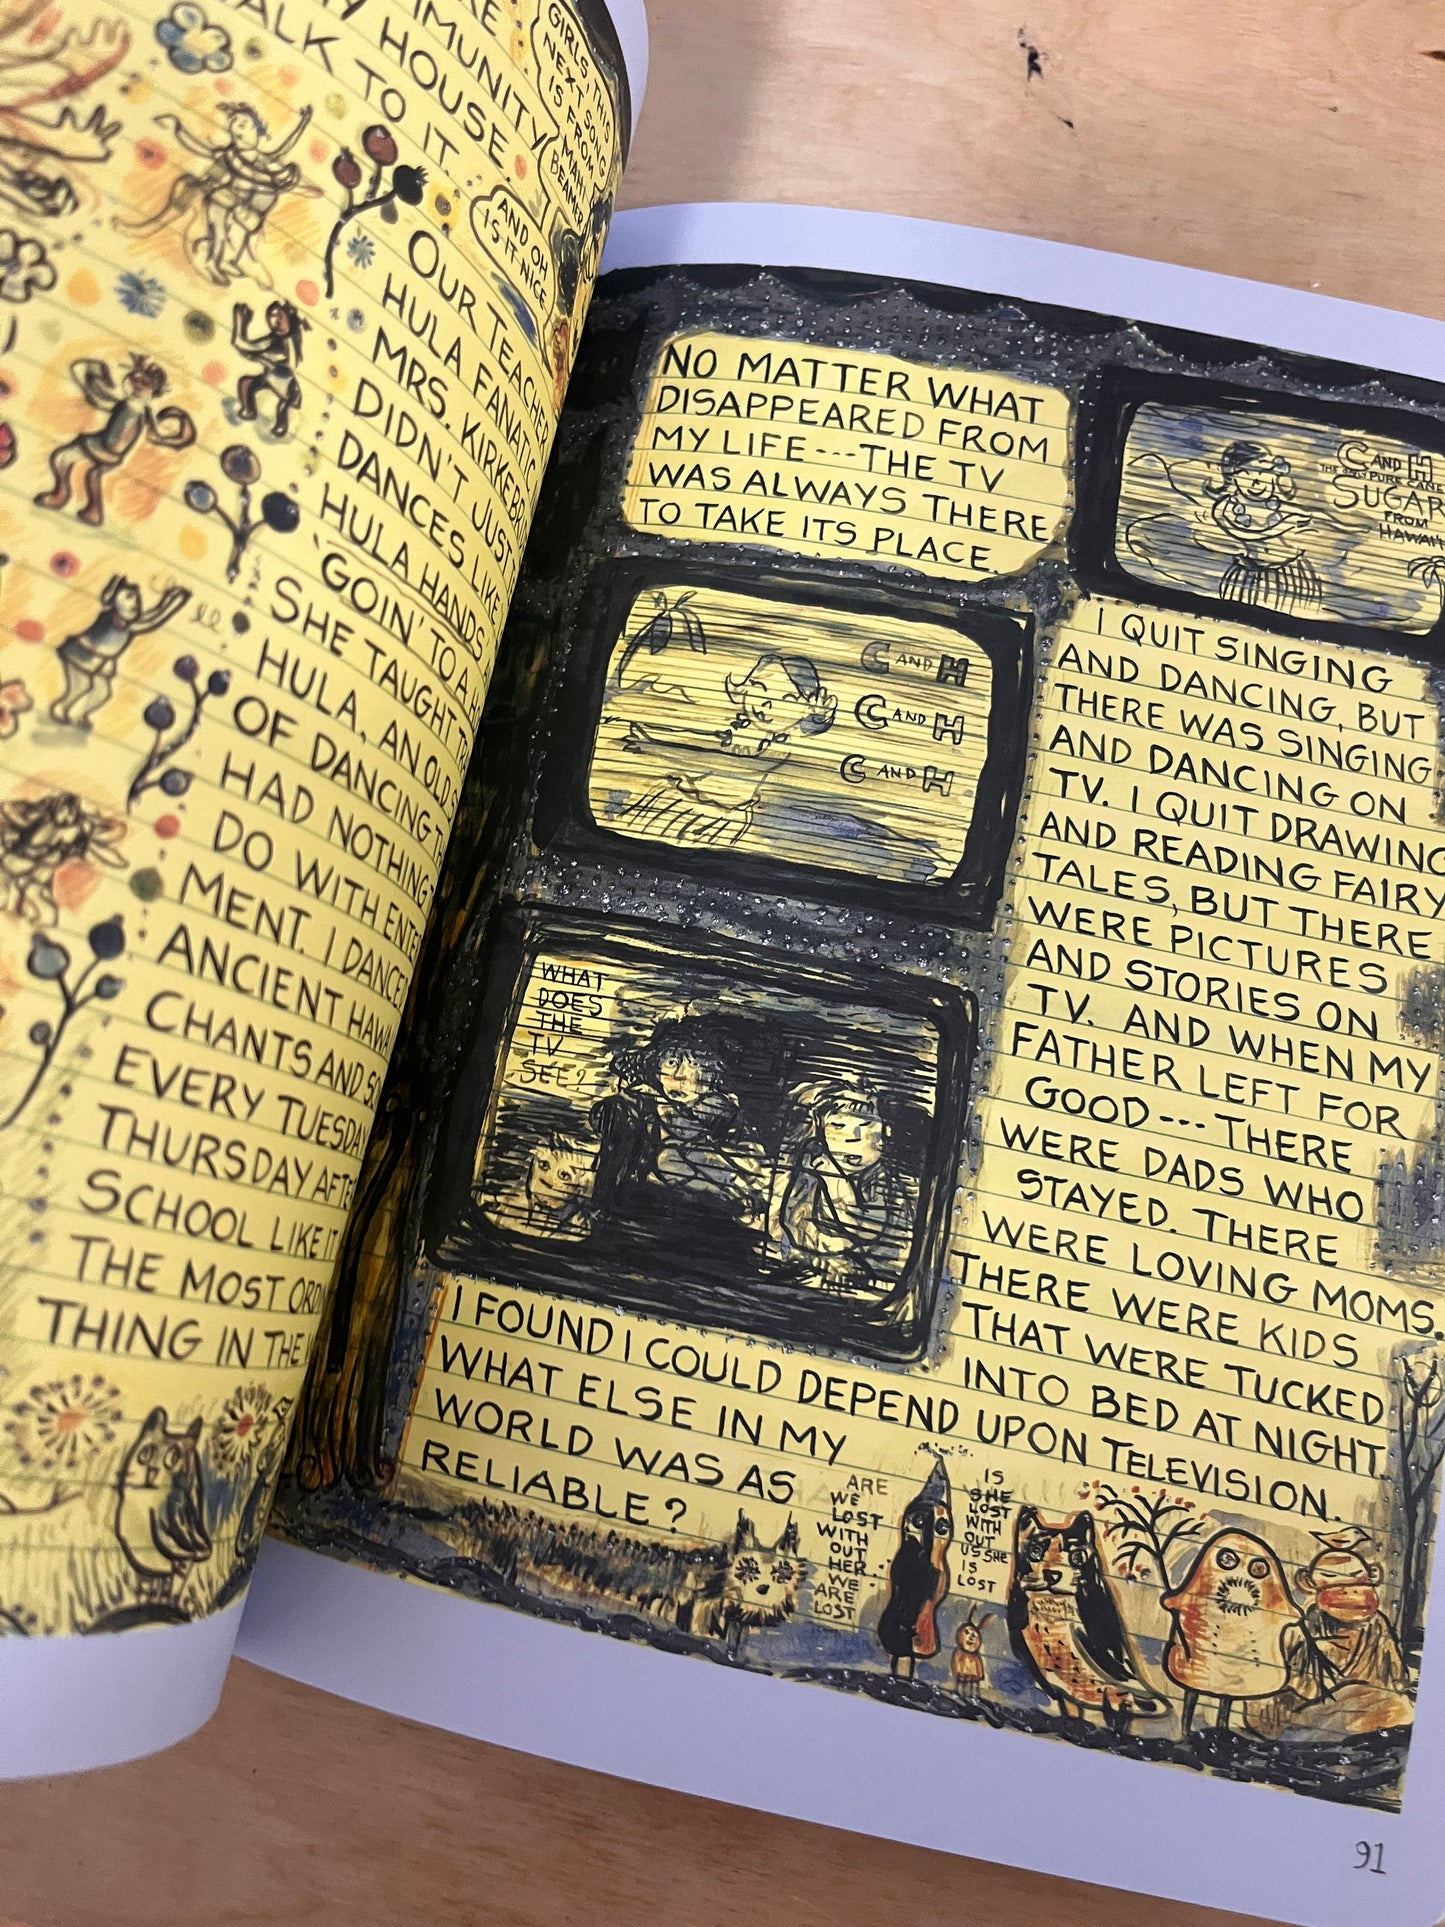 IMUNITY
MY HOUSE
TALK TO IT
GIRLS, THIS
NEXT SONG
IS FROM
MAHI
BEAMER
AND OH
IS IT NICE
OUR TEACHER
HULA FANATIC
MRS. KIRKEBR
DIDN'T JUST
DANCES LIKE
HULA HANDS
'GOIN' TO A
SHE TAUGHT
HULA, AN OLD
OF DANCING
HAD NOTHING
DO WITH ENTER
MENT. I DANCE
ANCIENT HAWA
CHANTS AND SO
EVERY TUESDAY
THURSDAY AFTE
SCHOOL LIKE IT
THE MOST ORDI
THING IN THE
NO MATTER WHAT
DISAPPEARED FROM
MY LIFE---THE TV
WAS ALWAYS THERE
TO TAKE ITS PLACE.
C AND H
PURE CANE
SUGAR
FROM
HAWAII
C AND H
C AND H
C AND H
WHAT
DOES
THE
TV
SEE?
I QUIT SINGING
AND DANCING, BUT
THERE WAS SINGING
AND DANCING ON
TV. I QUIT DRAWING
AND READING FAIRY
TALES, BUT THERE
WERE PICTURES
AND STORIES ON
TV. AND WHEN MY
FATHER LEFT FOR
GOOD---THERE
WERE DADS WHO
STAYED. THERE
WERE LOVING MOMS.
THERE WERE KIDS
THAT WERE TUCKED
INTO BED AT NIGHT.
I FOUND I COULD DEPEND UPON TELEVISION.
WHAT ELSE IN MY
WORLD WAS AS
RELIABLE?
ARE
WE
LOST
WITH
OUT
HER
WE
ARE
LOST
IS
SHE
LOST
WITH
OUT
US SHE
IS
LOST
91